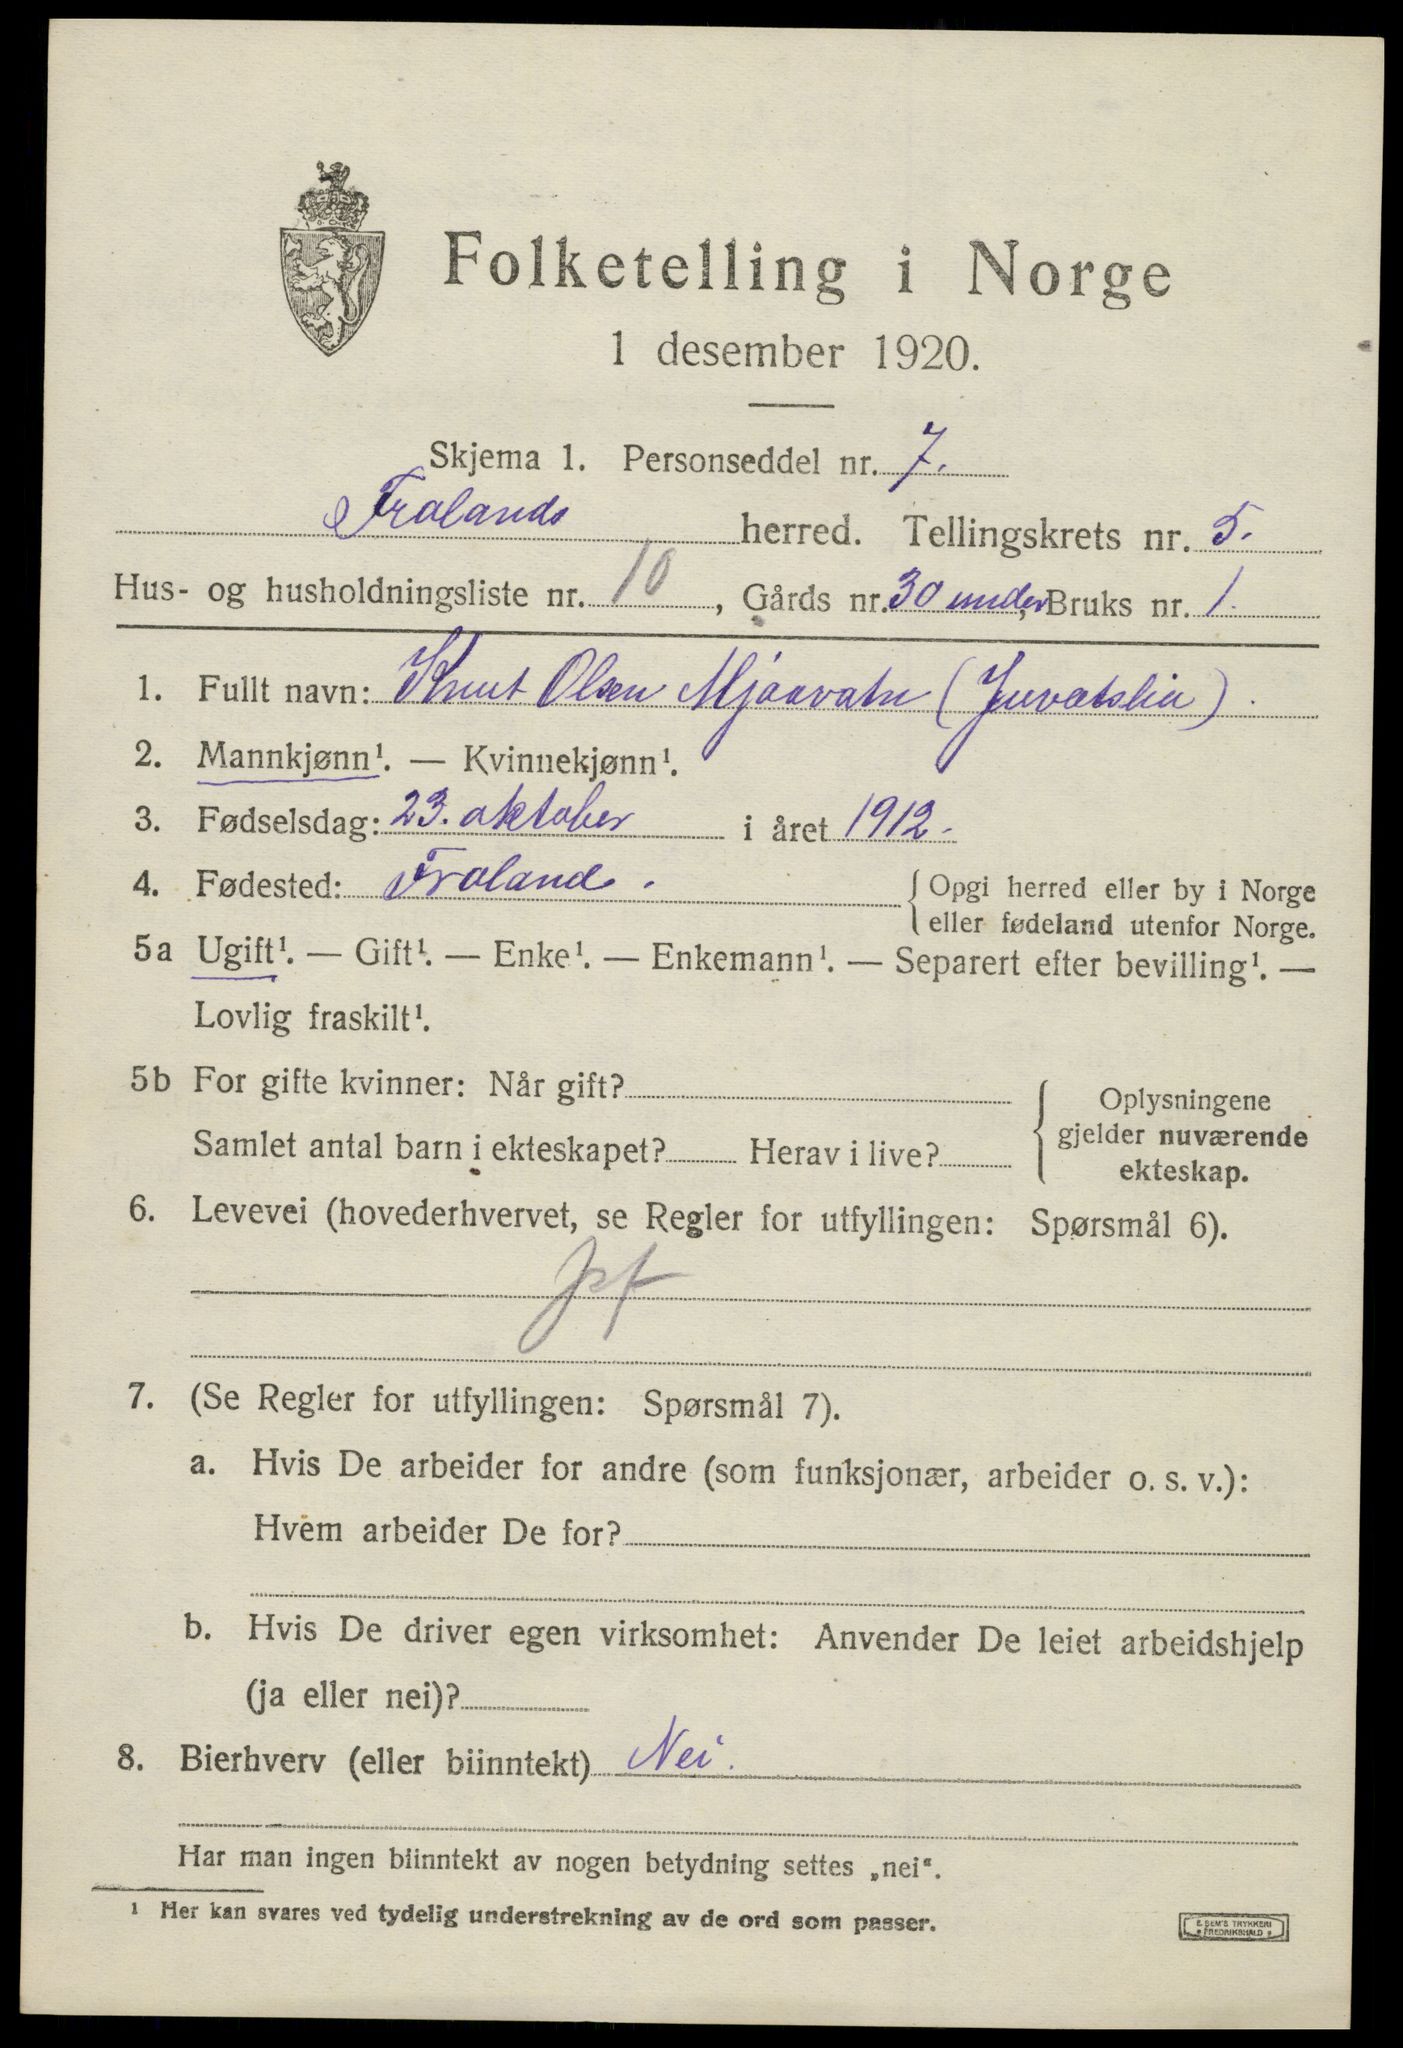 Folketelling i Norge
1 desember 1920.
Skjema 1. Personseddel nr. 7.
Frolands herred. Tellingskrets nr. 5.
Hus- og husholdningsliste nr. 10, Gårds nr. 30 under, Bruks nr. 1.
1. Fullt navn: Knut Olsen Mjaavatn (Juvatslia).
2. Mannkjønn¹. — Kvinnekjønn¹.
3. Fødselsdag: 23. oktober i året 1912.
4. Fødested: Froland. { Opgi herred eller by i Norge
eller fødeland utenfor Norge.
5a Ugift¹. — Gift¹. — Enke¹. — Enkemann¹. — Separert efter bevilling¹. —
Lovlig fraskilt¹.
5b For gifte kvinner: Når gift?
Samlet antal barn i ekteskapet? Herav i live?
Oplysningene
gjelder nuværende
ekteskap.
6. Levevei (hovederhvervet, se Regler for utfyllingen: Spørsmål 6).
7. (Se Regler for utfyllingen: Spørsmål 7).
a. Hvis De arbeider for andre (som funksjonær, arbeider o. s. v.):
Hvem arbeider De for?
b. Hvis De driver egen virksomhet: Anvender De leiet arbeidshjelp
(ja eller nei)?
8. Bierhverv (eller biinntekt) Nei.
Har man ingen biinntekt av nogen betydning settes „nei“.
¹ Her kan svares ved tydelig understrekning av de ord som passer.
E. SEM'S TRYKKERI
FREDRIKSHALD